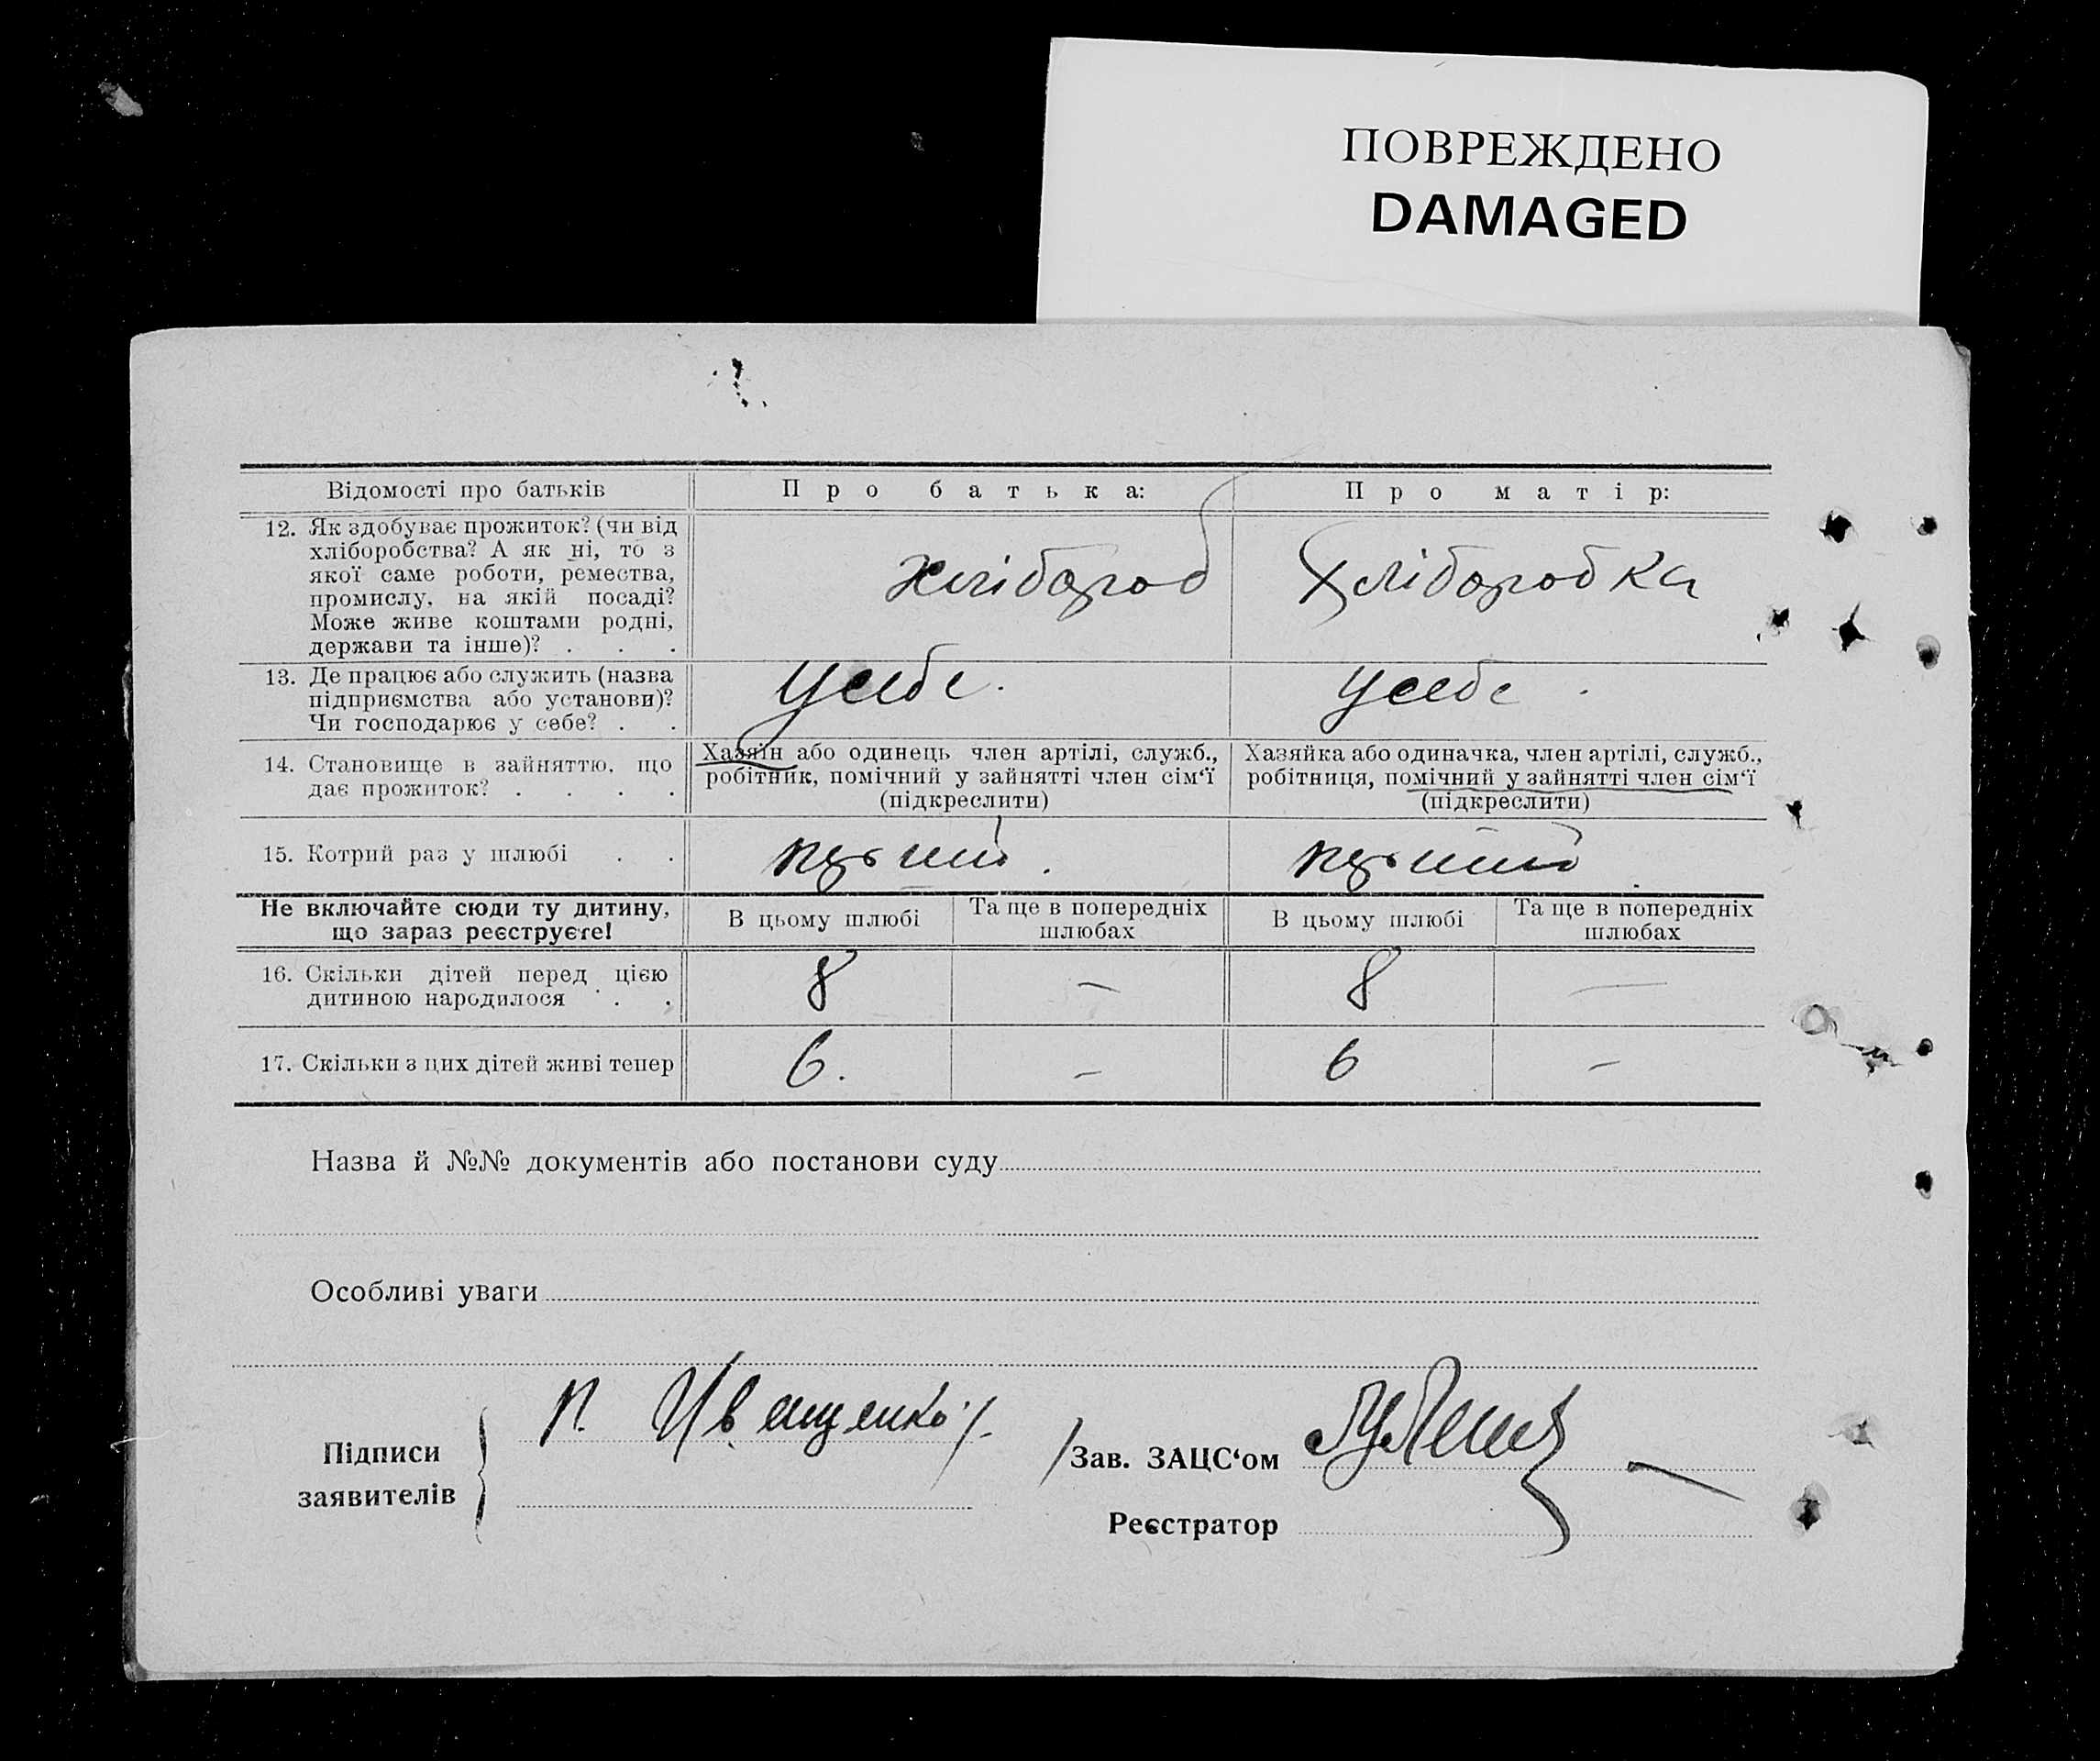 ПОВРЕЖДЕНО
DAMAGED
Відомості про батьків
Про батька:
Про матір:
12. Як здобуває прожиток? (чи від
хліборобства? А як ні, то з
якої саме роботи, ремества,
промислу, на якій посаді?
Може живе коштами родні,
держави та інше)? . . .
хлібороб
Хліборобка
13. Де працює або служить (назва
підприємства або установи)?
Чи господарює у себе? . .
У себе.
У себе
14. Становище в зайняттю, що
дає прожиток? . . . .
Хазяїн або одинець член артілі, служб.,
робітник, помічний у зайнятті член сім‘ї
(підкреслити)
Хазяйка або одиначка, член артілі, служб.,
робітниця, помічний у зайнятті член сім‘ї
(підкреслити)
15. Котрий раз у шлюбі . .
перший.
перший
Не включайте сюди ту дитину,
що зараз реєструєте!
В цьому шлюбі
Та ще в попередніх
шлюбах
В цьому шлюбі
Та ще в попередніх
шлюбах
16. Скільки дітей перед цією
дитиною народилося . .
8
—
8
—
17. Скільки з цих дітей живі тепер
6.
—
6
—
Назва й №№ документів або постанови суду
Особливі уваги
Підписи
заявителів
П. Иващенко
Зав. ЗАЦС‘ом
Реєстратор